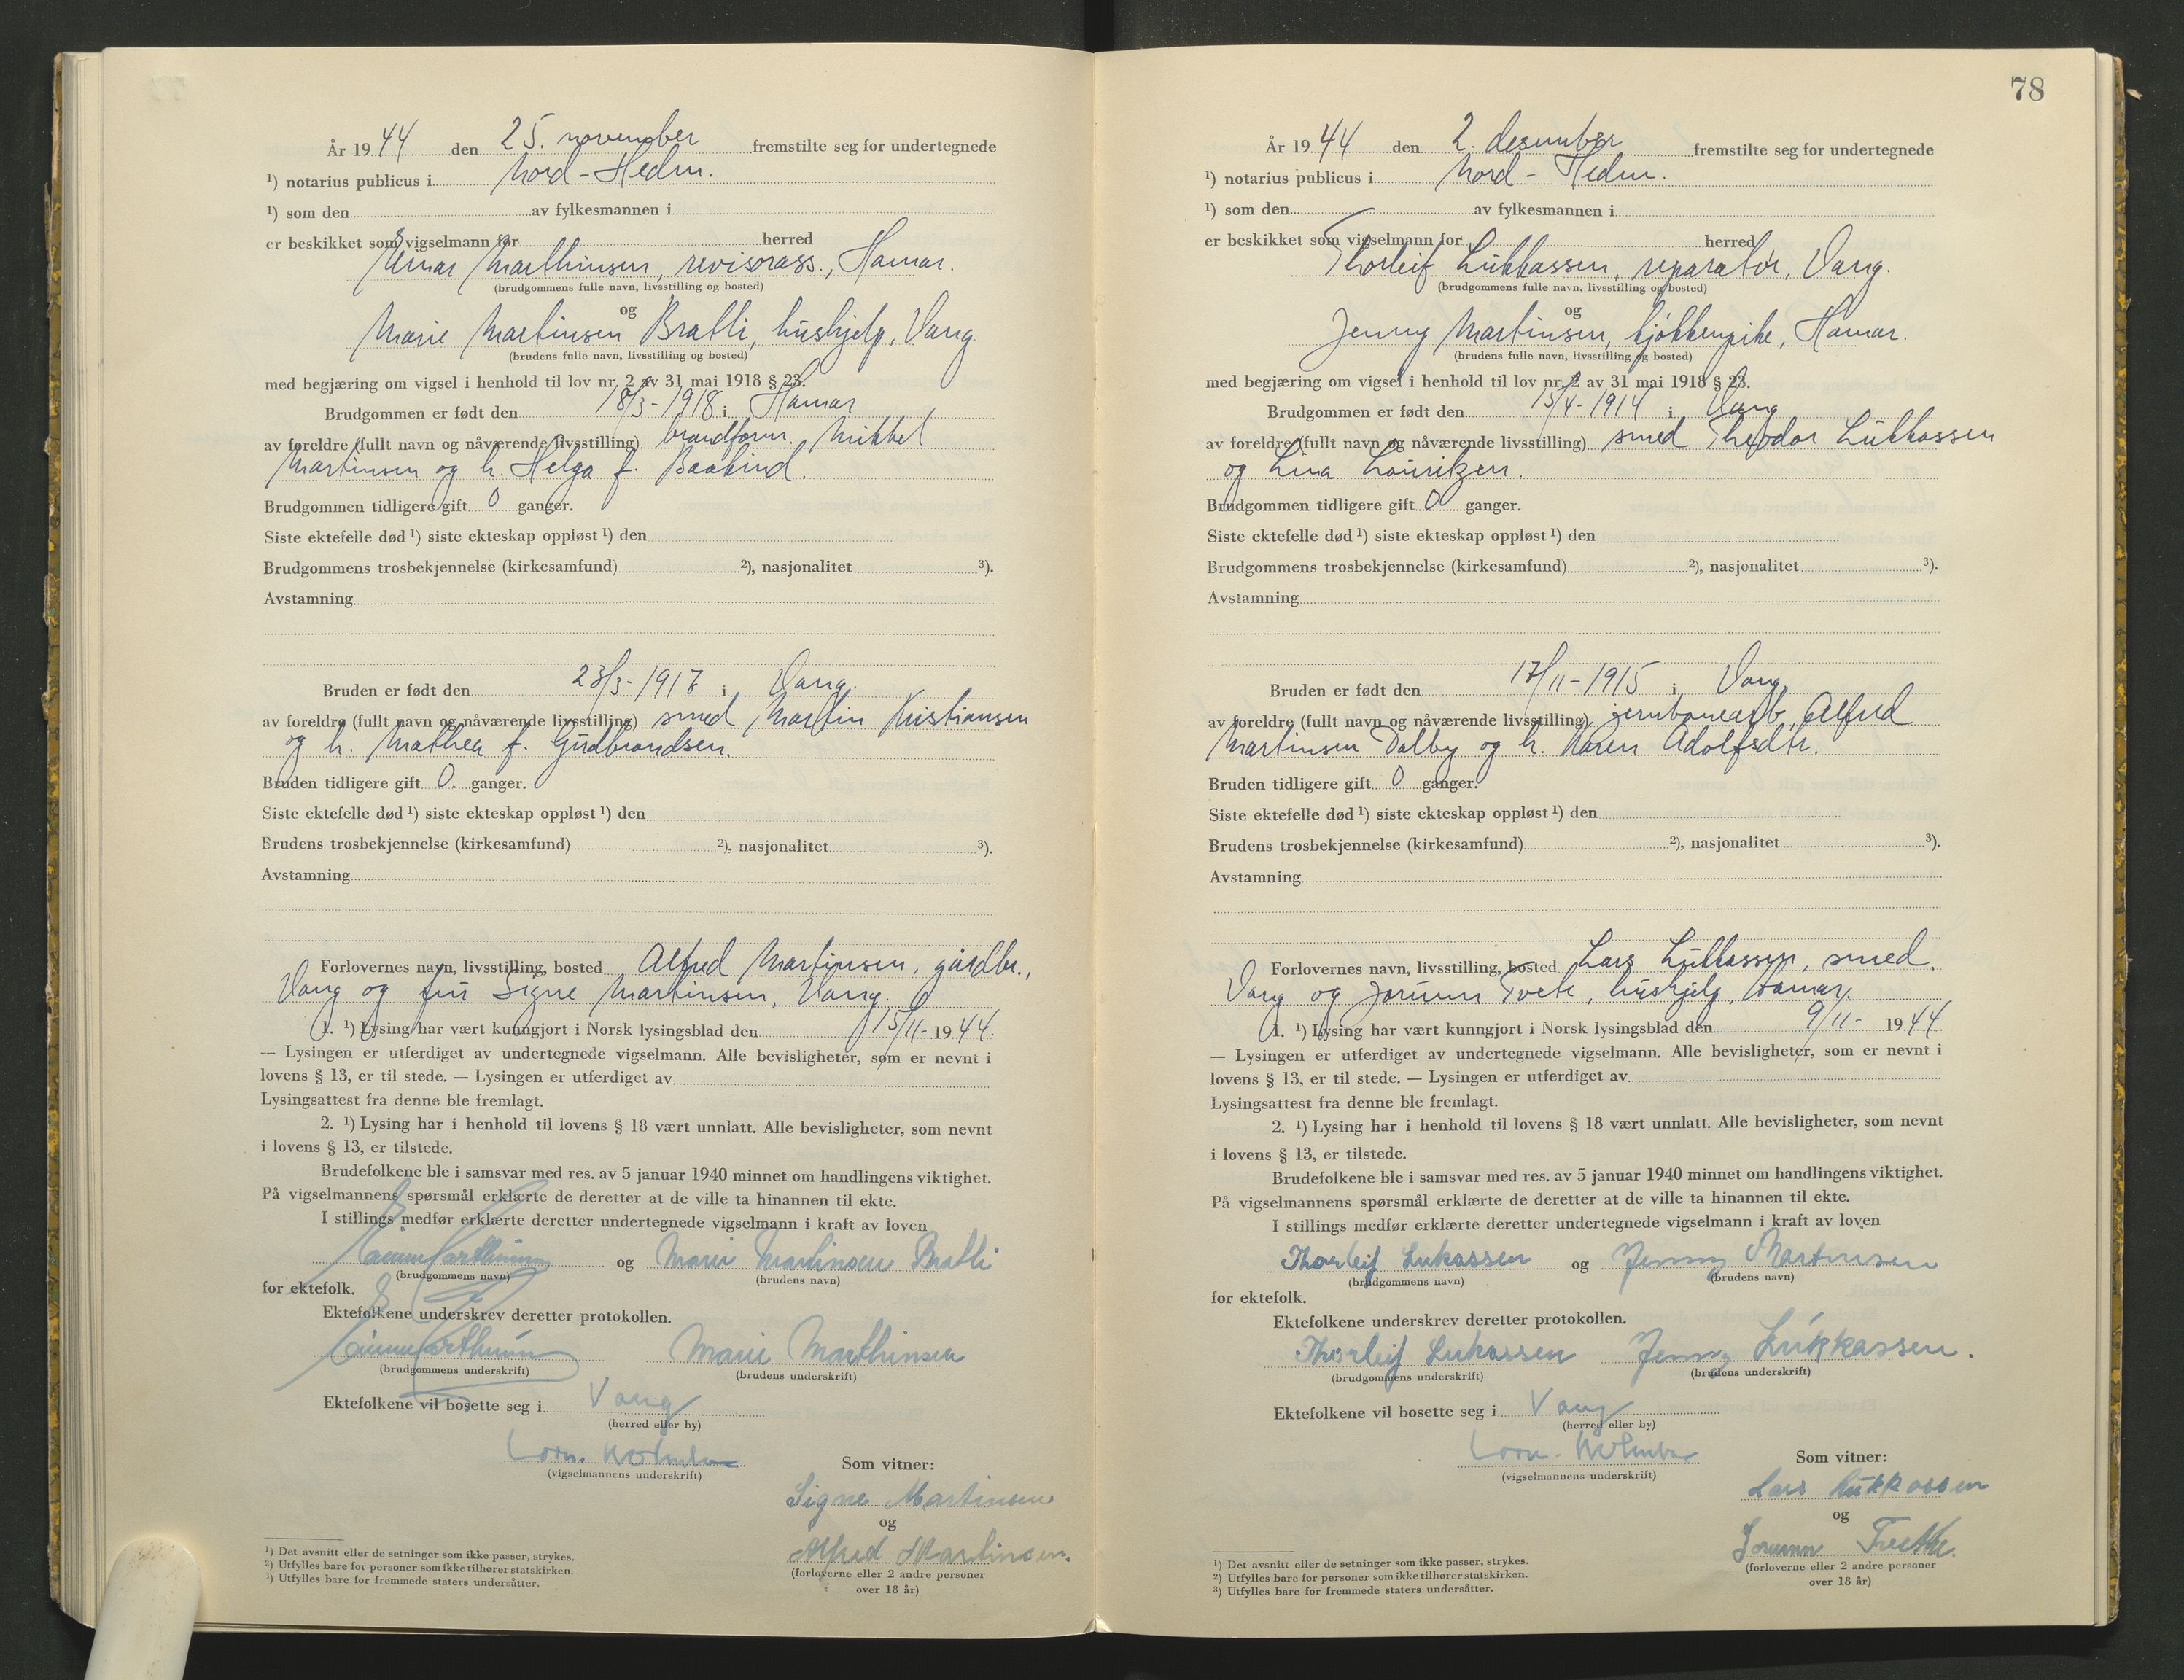 År 1944 den 25. november fremstilte seg for undertegnede
¹) notarius publicus i Nord-Hedm.
¹) som den av fylkesmannen i
er beskikket som vigselmann for herred
Einar Marthinsen, revisorass., Hamar.
(brudgommens fulle navn, livsstilling og bosted)
og
Marie Martinsen Bratli, hushjelp, Vang
(brudens fulle navn, livsstilling og bosted)
med begjæring om vigsel i henhold til lov nr. 2 av 31 mai 1918 § 23.
Brudgommen er født den 18/3-1918 i Hamar
av foreldre (fullt navn og nåværende livsstilling) brandform. Mikkel
Martinsen og h. Helga f. Baakind.
Brudgommen tidligere gift 0 ganger.
Siste ektefelle død ¹) siste ekteskap oppløst ¹) den
Brudgommens trosbekjennelse (kirkesamfund) ²), nasjonalitet ³).
Avstamning
Bruden er født den 23/3-1917 i Vang.
av foreldre (fullt navn og nåværende livsstilling) smed Martin Kristiansen
og h. Mathea f. Gudbrandsen.
Bruden tidligere gift 0. ganger.
Siste ektefelle død ¹) siste ekteskap oppløst ¹) den
Brudens trosbekjennelse (kirkesamfund) ²), nasjonalitet ³).
Avstamning
Forlovernes navn, livsstilling, bosted Alfred Martinsen, gårdbr.,
Vang og fru Signe Martinsen, Vang.
1. ¹) Lysing har vært kunngjort i Norsk lysingsblad den 15/11-1944.
— Lysingen er utferdiget av undertegnede vigselmann. Alle bevisligheter, som er nevnt i
lovens § 13, er til stede. — Lysingen er utferdiget av
Lysingsattest fra denne ble fremlagt.
2. ¹) Lysing har i henhold til lovens § 18 vært unnlatt. Alle bevisligheter, som nevnt
i lovens § 13, er tilstede.
Brudefolkene ble i samsvar med res. av 5 januar 1940 minnet om handlingens viktighet.
På vigselmannens spørsmål erklærte de deretter at de ville ta hinannen til ekte.
I stillings medfør erklærte deretter undertegnede vigselmann i kraft av loven
Einar Marthinsen og Marie Martinsen Bratli
(brudgommens navn) (brudens navn)
for ektefolk.
Ektefolkene underskrev deretter protokollen.
Einar Marthinsen Marie Marthinsen
(brudgommens underskrift) (brudens underskrift)
Ektefolkene vil bosette seg i Vang
(herred eller by)
(vigselmannens underskrift)
Som vitner:
Signe Martinsen
og
Alfred Martinsen.
(forloverne eller 2 andre personer
over 18 år)
¹) Det avsnitt eller de setninger som ikke passer, strykes.
²) Utfylles bare for personer som ikke tilhører statskirken.
³) Utfylles bare for fremmede staters undersåtter.
78
År 1944 den 2. desember fremstilte seg for undertegnede
¹) notarius publicus i Nord-Hedm.
¹) som den av fylkesmannen i
er beskikket som vigselmann for herred
Thorleif Lukkassen, reparatør, Vang.
(brudgommens fulle navn, livsstilling og bosted)
og
Jenny Martinsen, kjøkkenpike, Hamar.
(brudens fulle navn, livsstilling og bosted)
med begjæring om vigsel i henhold til lov nr. 2 av 31 mai 1918 § 23.
Brudgommen er født den 15/4-1914 i Vang
av foreldre (fullt navn og nåværende livsstilling) smed Theodor Lukkassen
og Lina Lauritzen.
Brudgommen tidligere gift 0 ganger.
Siste ektefelle død ¹) siste ekteskap oppløst ¹) den
Brudgommens trosbekjennelse (kirkesamfund) ²), nasjonalitet ³).
Avstamning
Bruden er født den 17/11-1915 i Vang
av foreldre (fullt navn og nåværende livsstilling) jernbanearb. Alfred
Martinsen Dalby og h. Karen Adolfsdtr.
Bruden tidligere gift 0 ganger.
Siste ektefelle død ¹) siste ekteskap oppløst ¹) den
Brudens trosbekjennelse (kirkesamfund) ²), nasjonalitet ³).
Avstamning
Forlovernes navn, livsstilling, bosted Lars Lukkassen, smed,
Vang og Jorunn Tvete, hushjelp, Hamar.
1. ¹) Lysing har vært kunngjort i Norsk lysingsblad den 9/11-1944
— Lysingen er utferdiget av undertegnede vigselmann. Alle bevisligheter, som er nevnt i
lovens § 13, er til stede. — Lysingen er utferdiget av
Lysingsattest fra denne ble fremlagt.
2. ¹) Lysing har i henhold til lovens § 18 vært unnlatt. Alle bevisligheter, som nevnt
i lovens § 13, er tilstede.
Brudefolkene ble i samsvar med res. av 5 januar 1940 minnet om handlingens viktighet.
På vigselmannens spørsmål erklærte de deretter at de ville ta hinannen til ekte.
I stillings medfør erklærte deretter undertegnede vigselmann i kraft av loven
Thorleif Lukassen og Jenny Martinsen
(brudgommens navn) (brudens navn)
for ektefolk.
Ektefolkene underskrev deretter protokollen.
Thorleif Lukassen Jenny Lukkassen.
(brudgommens underskrift) (brudens underskrift)
Ektefolkene vil bosette seg i Vang
(herred eller by)
(vigselmannens underskrift)
Som vitner:
Lars Lukkassen
og
Jorunn
(forloverne eller 2 andre personer
over 18 år)
¹) Det avsnitt eller de setninger som ikke passer, strykes.
²) Utfylles bare for personer som ikke tilhører statskirken.
³) Utfylles bare for fremmede staters undersåtter.